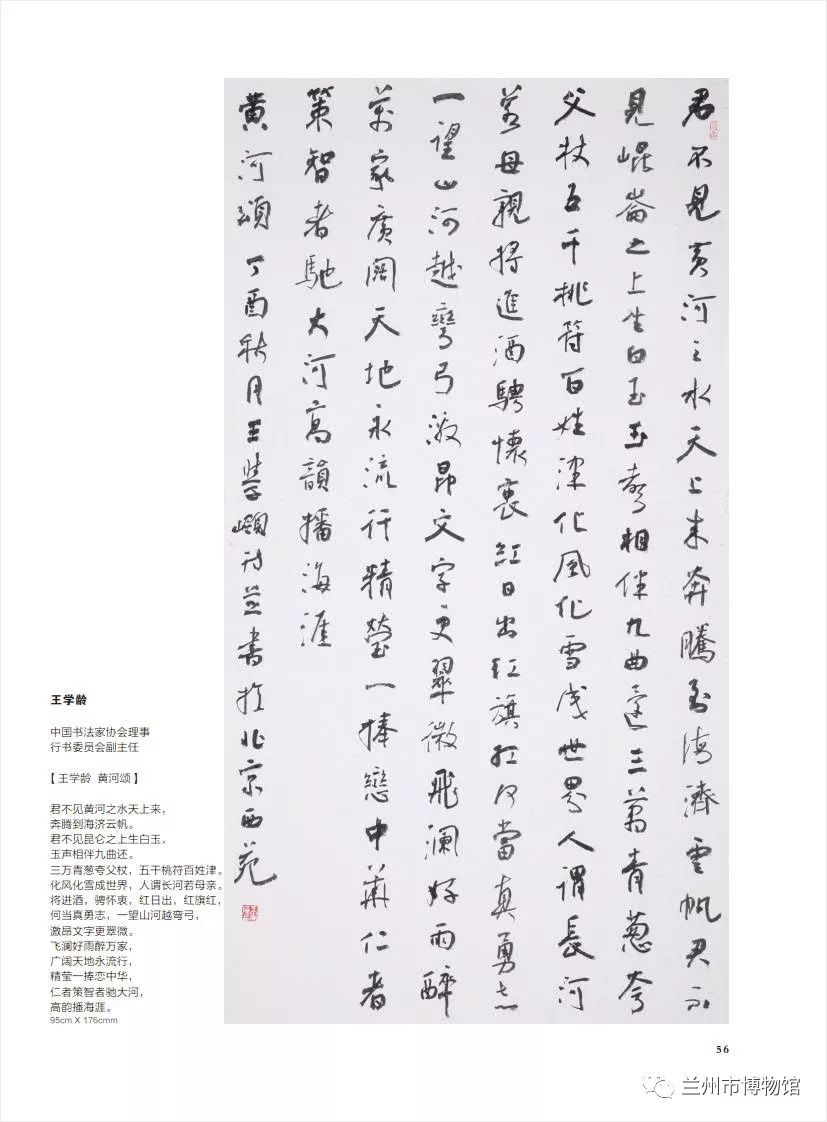 君不見黃河之水天上来奔騰到海濟雲帆君不
見崐崙之上生白玉玉聲相伴九曲還三萬青葱夸
父杖五千桃符百姓津化風化雪成世界人謂長河
若母親將進酒騁懷衷紅日出紅旗紅何當真勇志
一望山河越彎弓激昂文字更翠微飛瀾好雨醉
萬家廣闊天地永流行精瑩一捧戀中華仁者
策智者馳大河高韻播海涯
黄河頌丁酉秋月王學嶺詩並書於北京西苑
王学龄
中国书法家协会理事
行书委员会副主任
【王学龄 黄河颂】
君不见黄河之水天上来，
奔腾到海济云帆。
君不见昆仑之上生白玉，
玉声相伴九曲还。
三万青葱夸父杖，五干桃符百姓津。
化风化雪成世界，人谓长河若母亲。
将进酒，骋怀衷，红日出，红旗红，
何当真勇志，一望山河越弯弓，
激昂文字更翠微。
飞澜好雨醉万家，
广阔天地永流行，
精莹一捧恋中华，
仁者策智者驰大河，
高韵播海涯。
95cm X 176cmm
56
兰州市博物馆